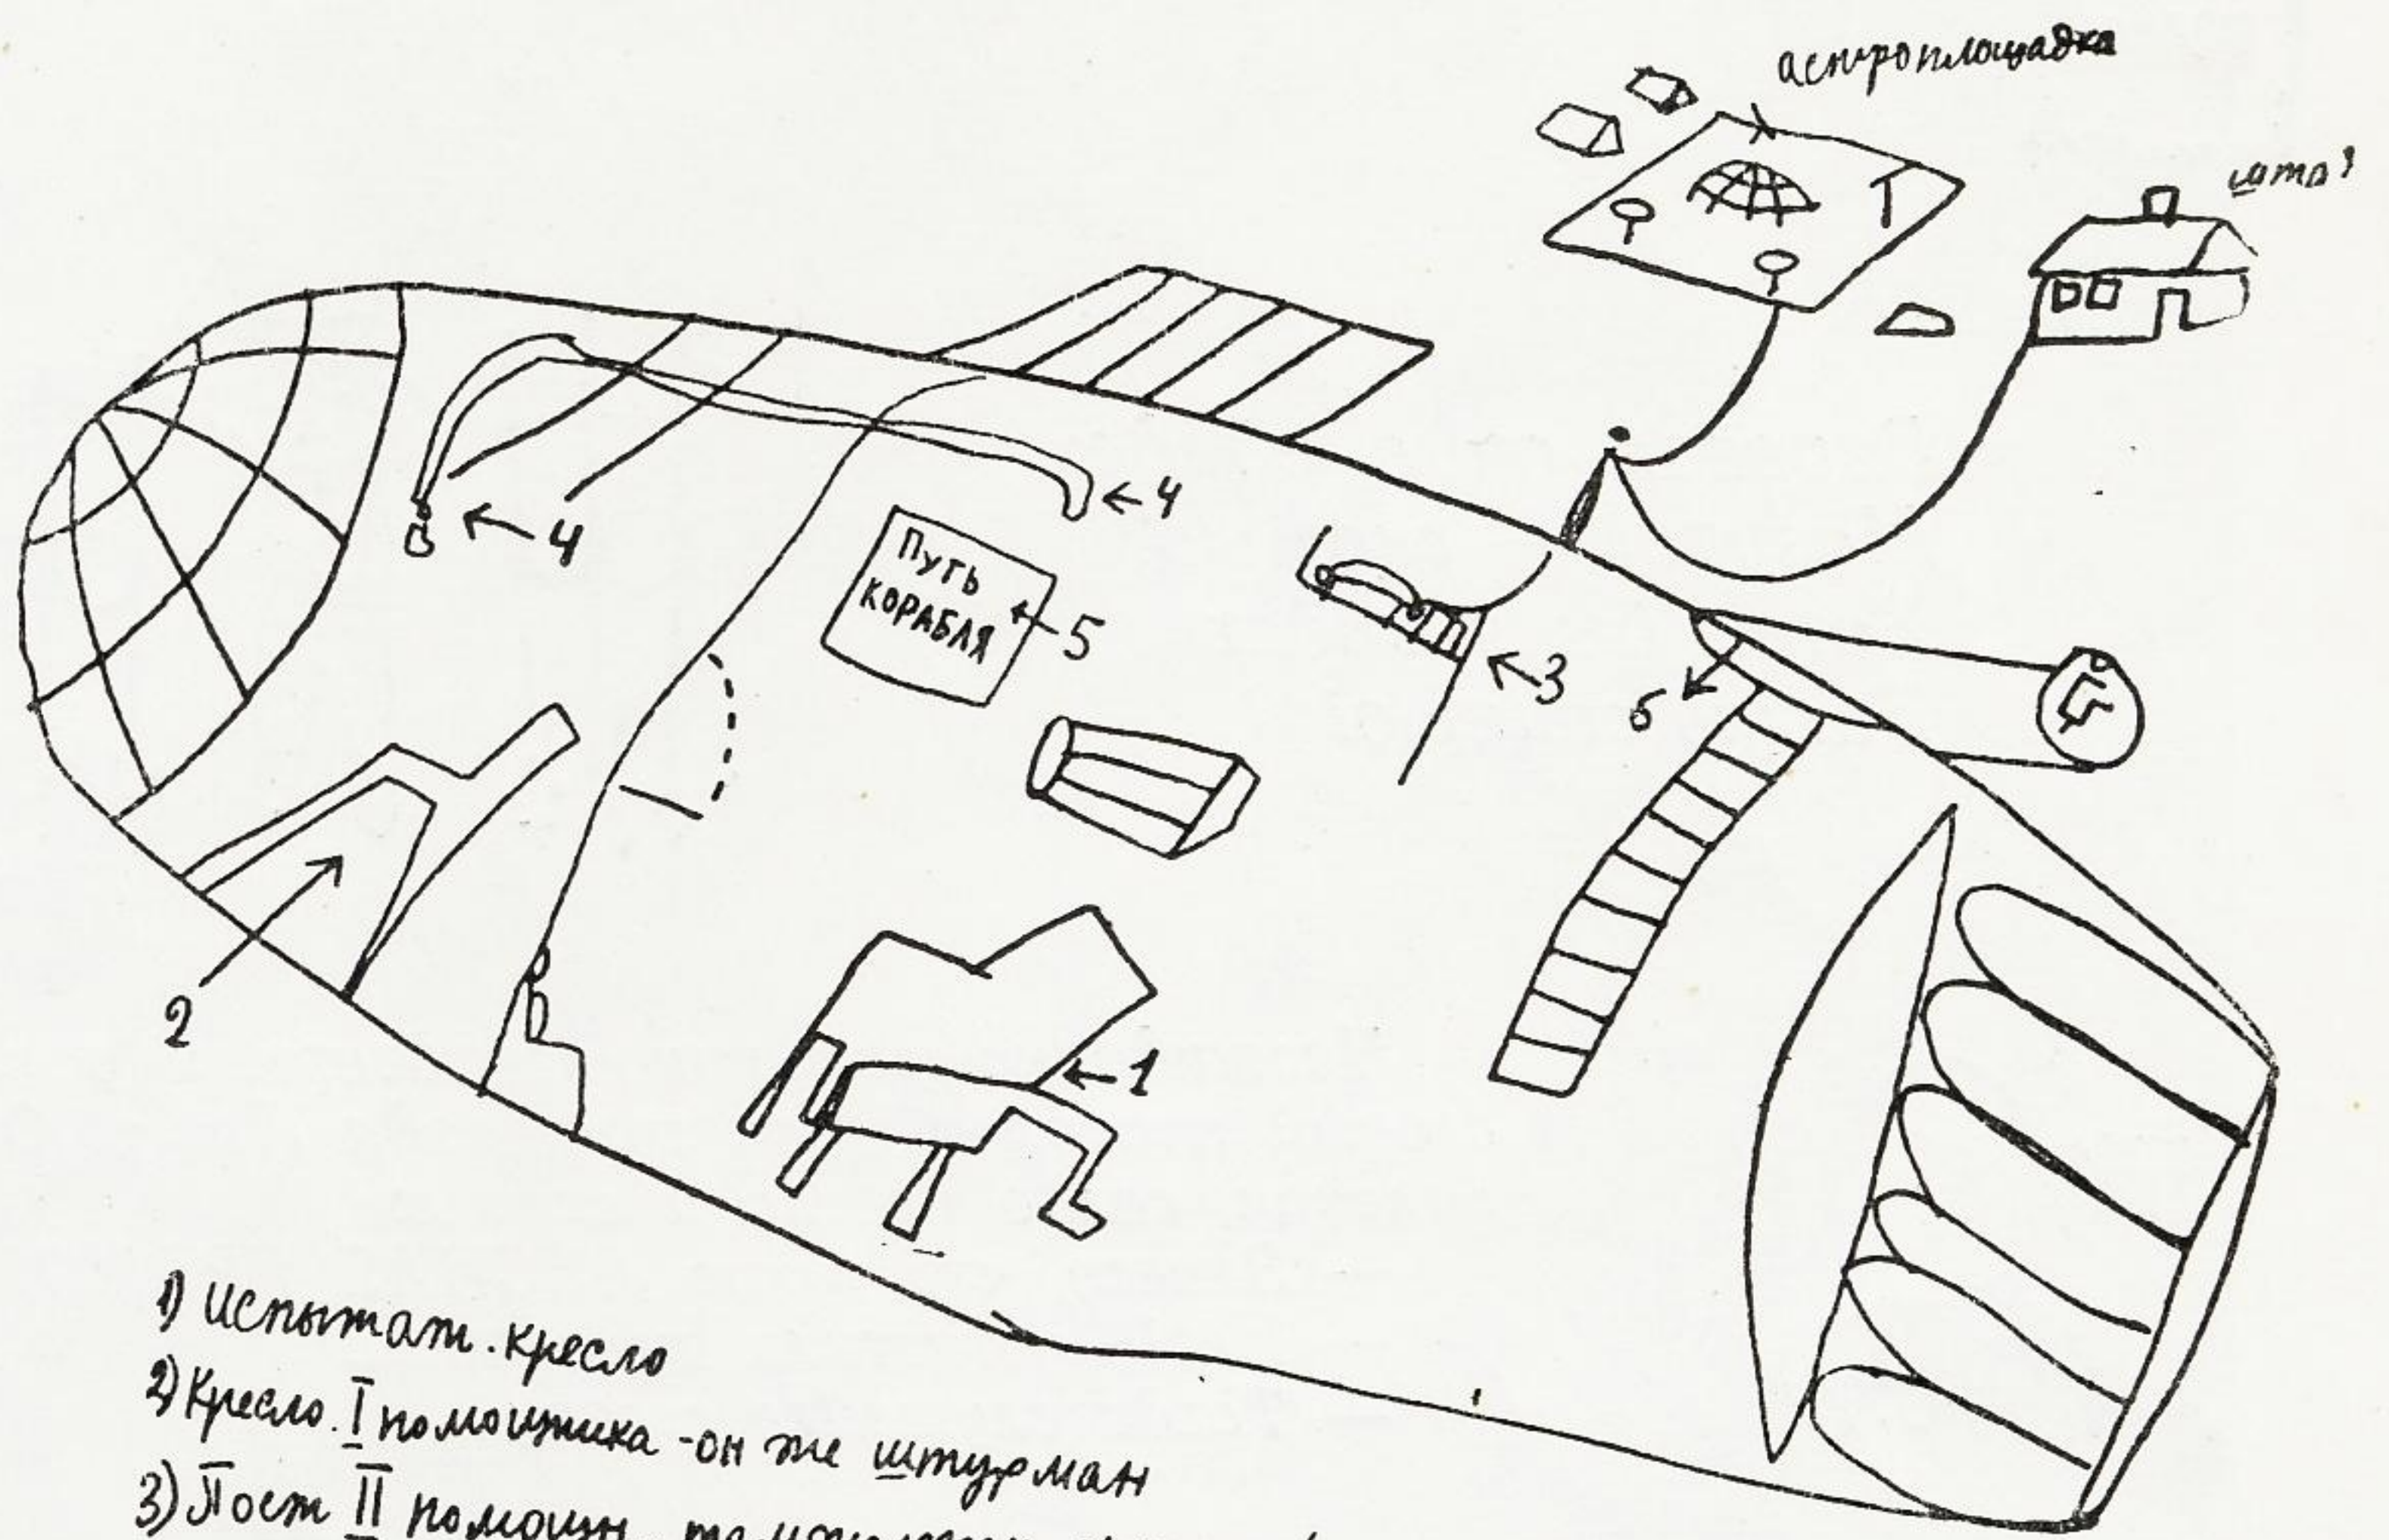 астроплощадка
4
4
ПУТЬ
КОРАБЛЯ
5
3
6
2
1
1) Испытат. кресло
2) Кресло. I помощника - он же штурман
3) Пост II помощн.